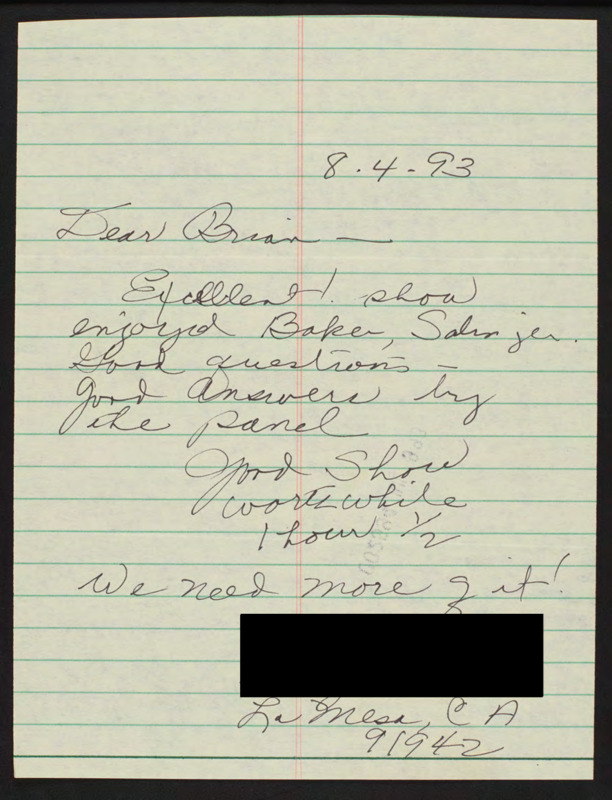 8.4.93
Dear Brian —
Excellent! show
enjoyed Baker, Salinjer.
Good questions —
good answers by
the panel
Good Show
worthwhile
1 hour 1/2
We need more of it!
La Mesa, CA
91942